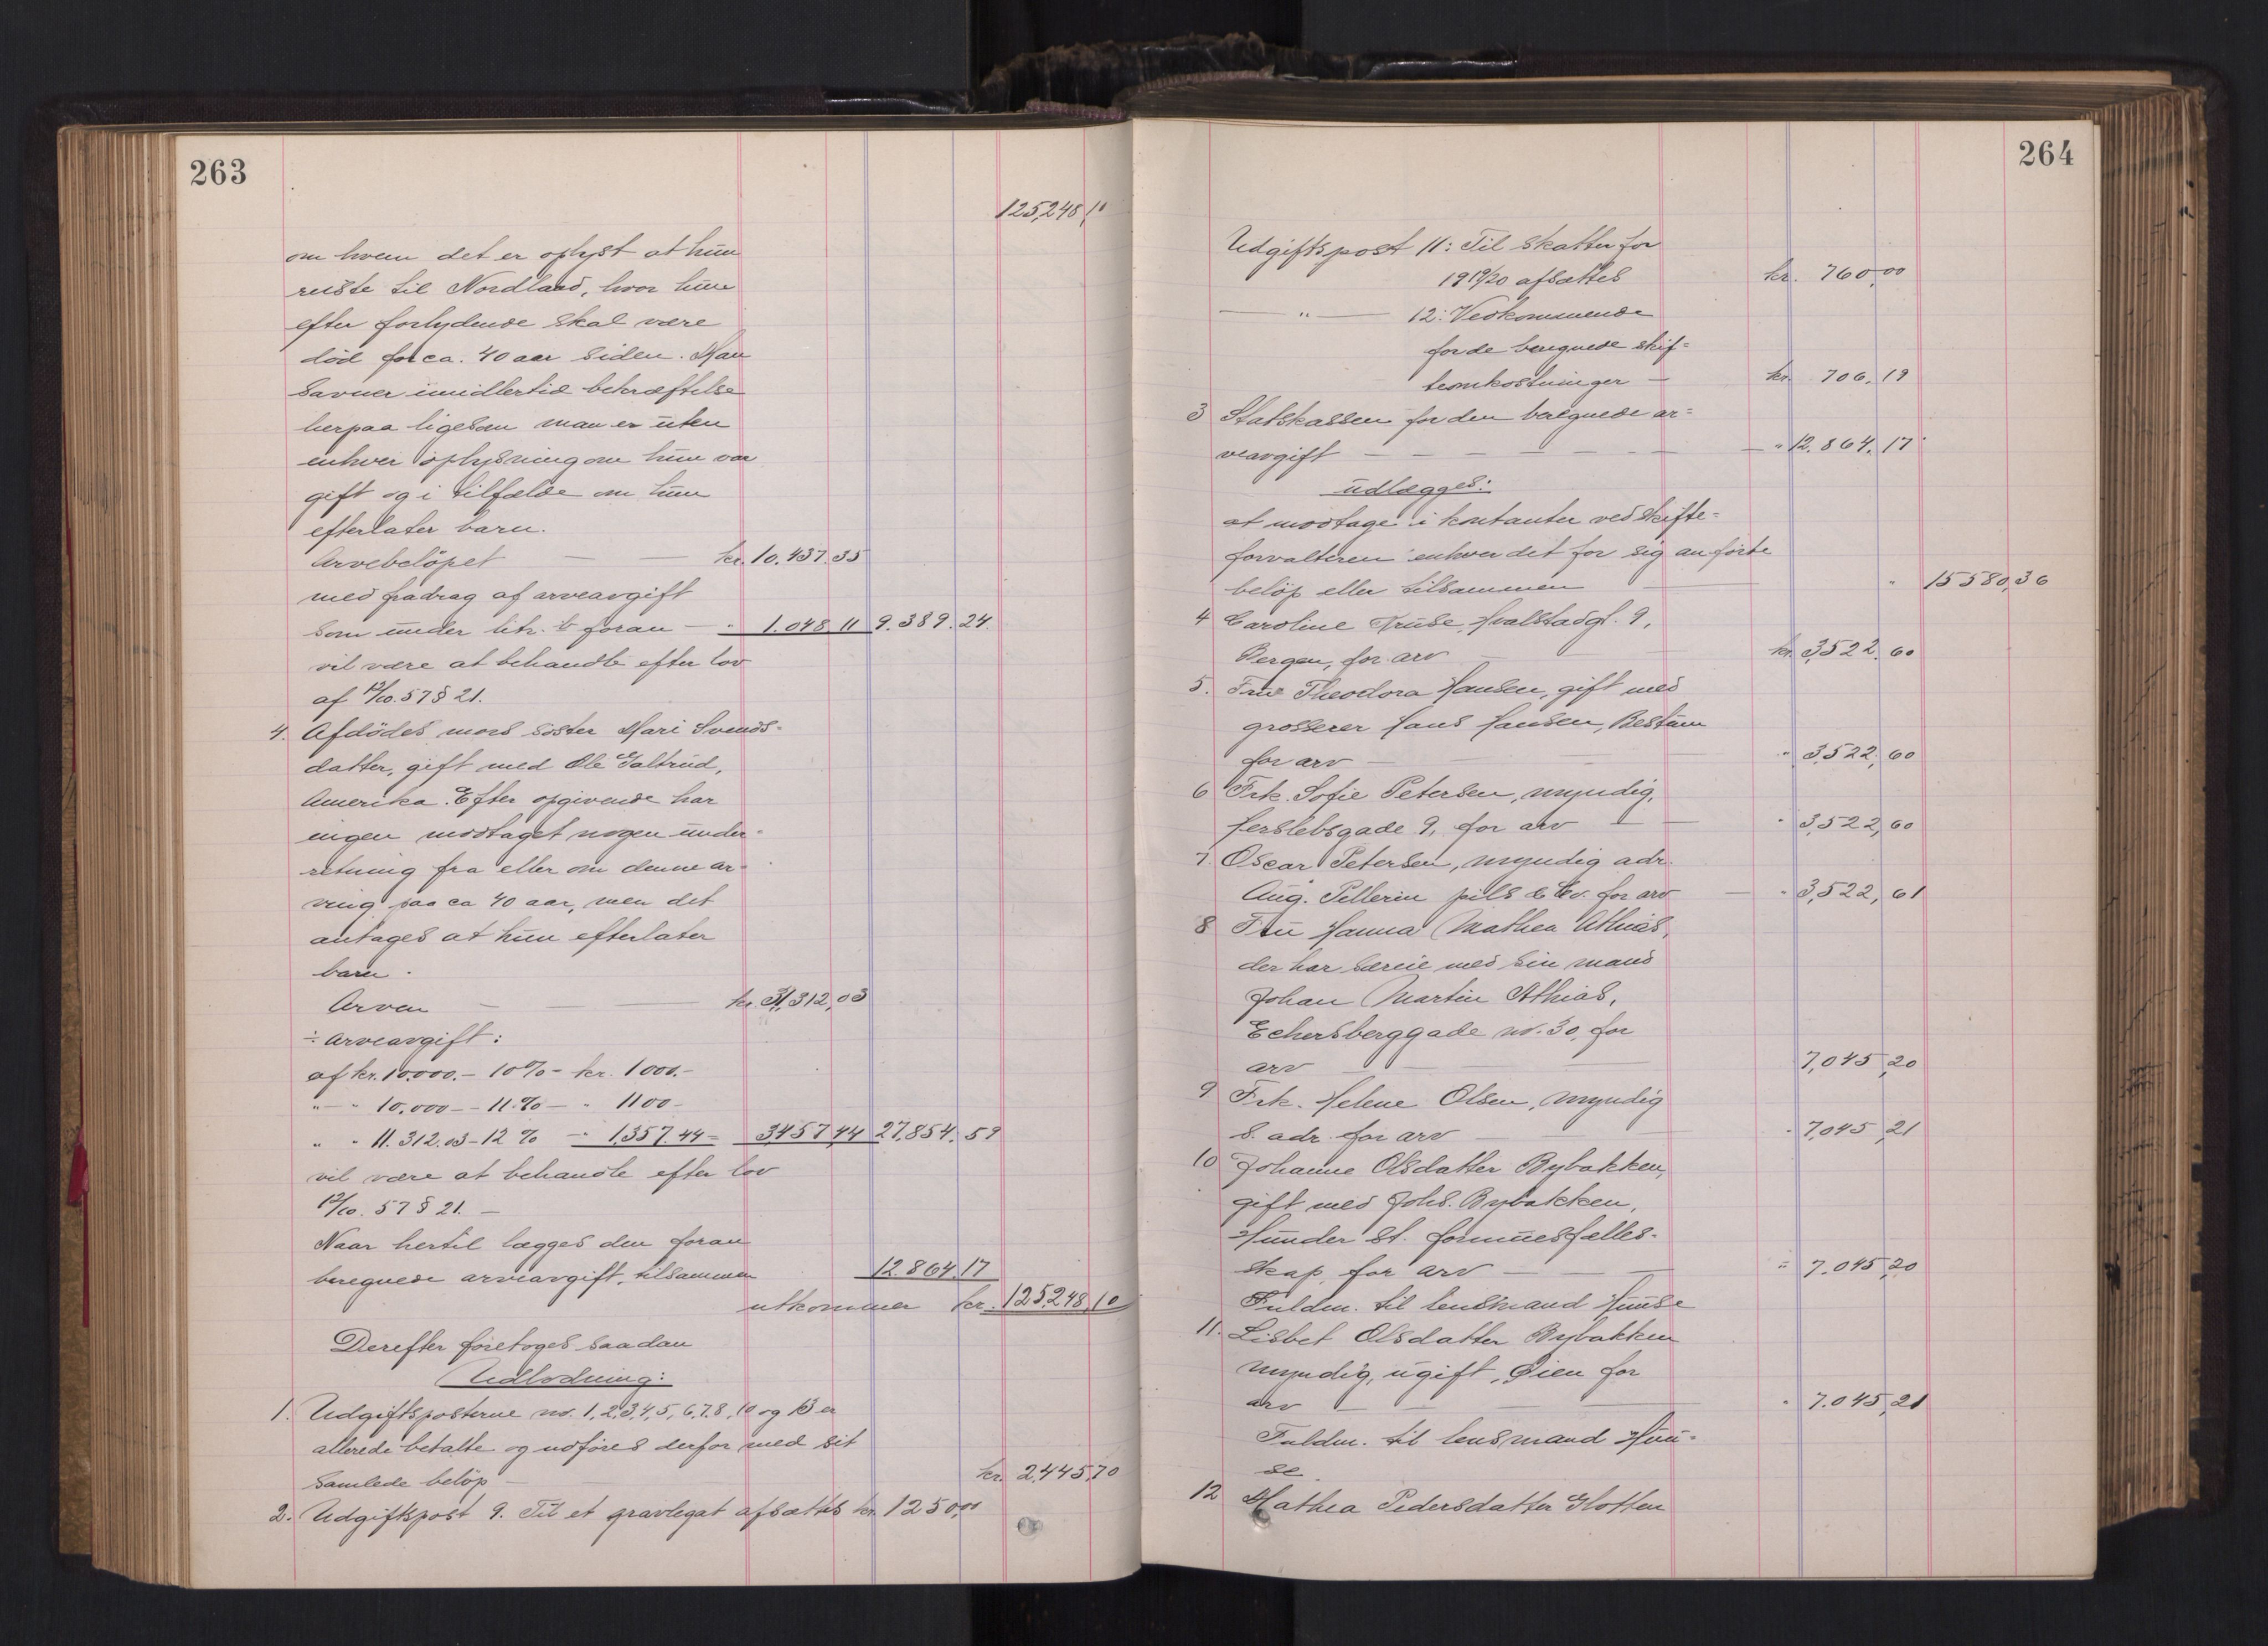 263
125,248,10
om hvem det er oplyst at hun
reiste til Nordland, hvor hun
efter forlydende skal være
död for ca. 40 aar siden. Man
savner imidlertid bekræftelse
herpaa ligesom man er uten
enhver oplysning om hun var
gift og i tilfælde om hun
efterlater barn.
Arvebelöpet — — kr. 10.437.35
med fradrag af arveavgift
som under litr. b foran — " 1.048 11 9.389.24
vil være at behandle efter lov
af 12/10.57 § 21.
4. Afdödes mors söster Mari Svends-
datter, gift med Ole Galtrud,
Amerika. Efter opgivende har
ingen modtaget nogen under-
retning fra eller om denne ar-
ving paa ca 40 aar, men det
antages at hun efterlater
barn.
Arven — — kr. 31,312,03
÷ arveavgift:
af kr. 10.000.- 10% - kr. 1000.-
" - " 10.000 - - 11% - " 1100 -
" " 11.312.03 - 12% - " 1,357.44 = 3,457,44 27,854.59
vil være at behandle efter lov
12/10.57 § 21. —
Naar hertil lægges den foran
beregnede arveavgift, tilsammen 12.864.17
utkommer kr. 125,248,10
Derefter foretoges saadan
Udlodning:
1. Udgiftsposterne no. 1, 2, 3, 4, 5, 6, 7, 8, 10 og 13 er
allerede betalte og udföres derfor med sit
samlede belöp — kr. 2,445,70
2. Udgiftspost 9. Til et gravlegat afsættes kr. 1250,00
264
Udgiftspost 11: Til skatter for
1919/20 afsættes kr. 760,00
— " — 12: Vedkommende
for de beregnede skif-
teomkostninger — kr. 706,19
3 Statskassen for den beregnede ar-
veavgift — — — — — — " 12.864,17
udlægges:
at modtage i kontanter ved skifte-
forvalteren enhver det for sig anförte
belöp eller tilsammen — " 15580,36
4 Caroline Kruse, Hvalstadgt. 9,
Bergen, for arv — — kr. 3,522.60
5. Fru Theodora Hansen, gift med
grosserer Hans Hansen, Bestum
for arv — — " 3,522,60
6 Frk. Sofie Petersen, myndig,
Herslebsgade 9, for arv — — " 3,522,60
7. Oscar Petersen, myndig adr.
Aug. Pellerin fils & Co. for arv — " 3,522,61
8 Fru Hanna Mathea Athias,
der har særeie med sin mand
Johan Martin Athias,
Eckersberggade no. 30, for
arv — — — 7,045,20
9 Frk. Helene Olsen, myndig
s. adr. for arv — — " 7,045,21
10 Johanne Olsdatter Bybakken,
gift med Johs. Bybakken,
Hunder st. formuesfælles-
skap, for arv — — " 7.045,20
Fuldm. til lensmand Huuse
11. Lisbet Olsdatter Bybakken
myndig, ugift, Öien for
arv — — " 7.045,21
Fuldm. til lensmand Huu-
se.
12 Mathea Pedersdatter Slotten